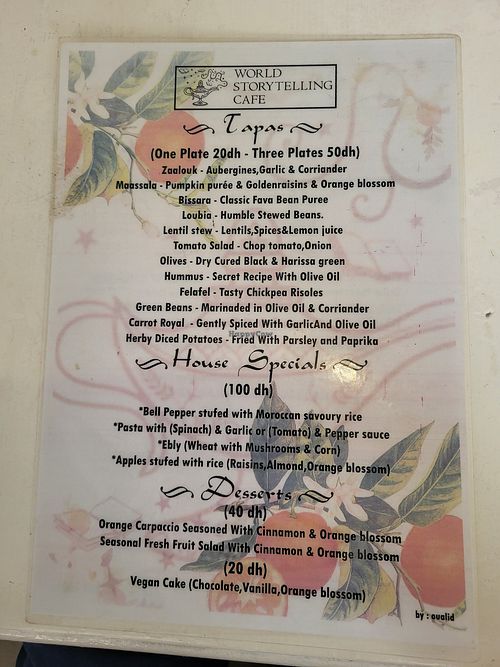 WORLD
STORYTELLING
CAFE
Tapas
(One Plate 20dh - Three Plates 50dh)
Zaalouk - Aubergines,Garlic & Corriander
Maassala - Pumpkin purée & Goldenraisins & Orange blossom
Bissara - Classic Fava Bean Puree
Loubia - Humble Stewed Beans.
Lentil stew - Lentils,Spices&Lemon juice
Tomato Salad - Chop tomato,Onion
Olives - Dry Cured Black & Harissa green
Hummus - Secret Recipe With Olive Oil
Felafel - Tasty Chickpea Risoles
Green Beans - Marinaded in Olive Oil & Corriander
Carrot Royal - Gently Spiced With GarlicAnd Olive Oil
HappyCow
Herby Diced Potatoes - Fried With Parsley and Paprika
House Specials
(100 dh)
*Bell Pepper stufed with Moroccan savoury rice
*Pasta with (Spinach) & Garlic or (Tomato) & Pepper sauce
*Ebly (Wheat with Mushrooms & Corn)
*Apples stufed with rice (Raisins,Almond,Orange blossom)
Desserts
(40 dh)
Orange Carpaccio Seasoned With Cinnamon & Orange blossom
Seasonal Fresh Fruit Salad With Cinnamon & Orange blossom
(20 dh)
Vegan Cake (Chocolate,Vanilla,Orange blossom)
by : oualid